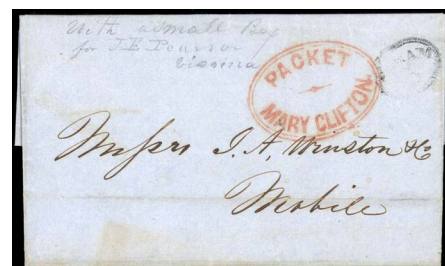 With a small Box
for J E Pearson
PACKET
MARY CLIFTON.
Messrs J. A. Winston & Co
Mobile